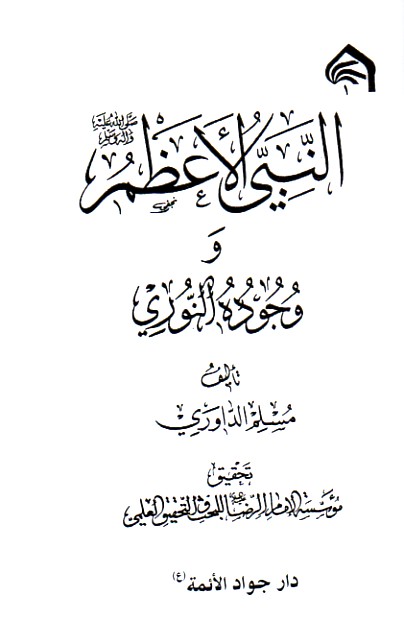 النَّبِيُّ الأَعْظَمُ صَلَّى اللهُ عَلَيْهِ وَآلِهِ وَسَلَّمَ
وَ
وُجُودُهُ النُّورِيّ
تأليف
مُسْلِم الدَّاوَرِي
تحقيق
مُؤَسَّسَةِ الإمَامِ الرِّضَا لِلبَحْثِ وَالتَّحْقِيقِ العِلْمِيّ
دار جواد الأئمة (ع)